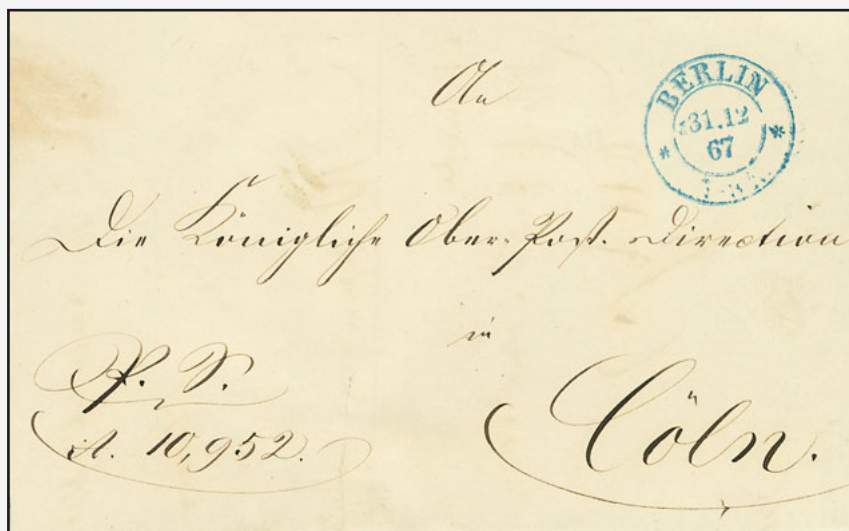 An
BERLIN
31.12
67
Die Königliche Ober-Post-Direction
in
P. S.
Cöln.
A. 10,952.